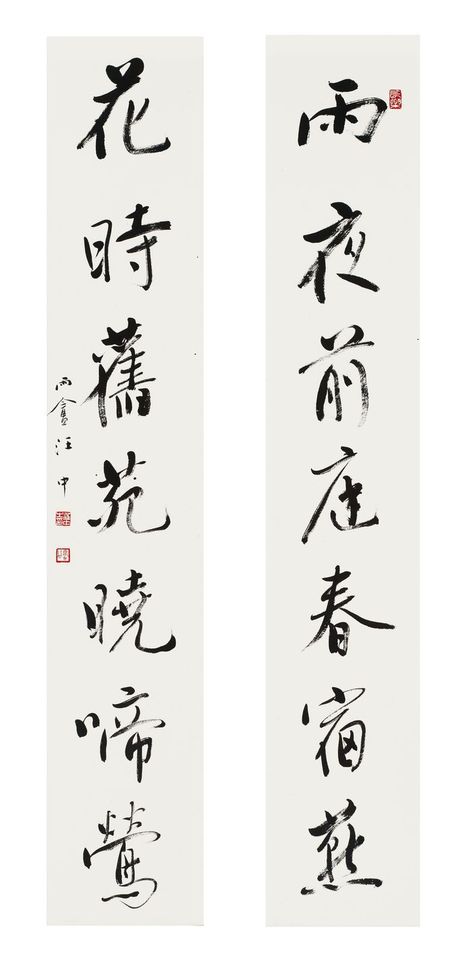 雨夜前庭春宿燕
花時舊苑曉啼鶯
雨盦汪中